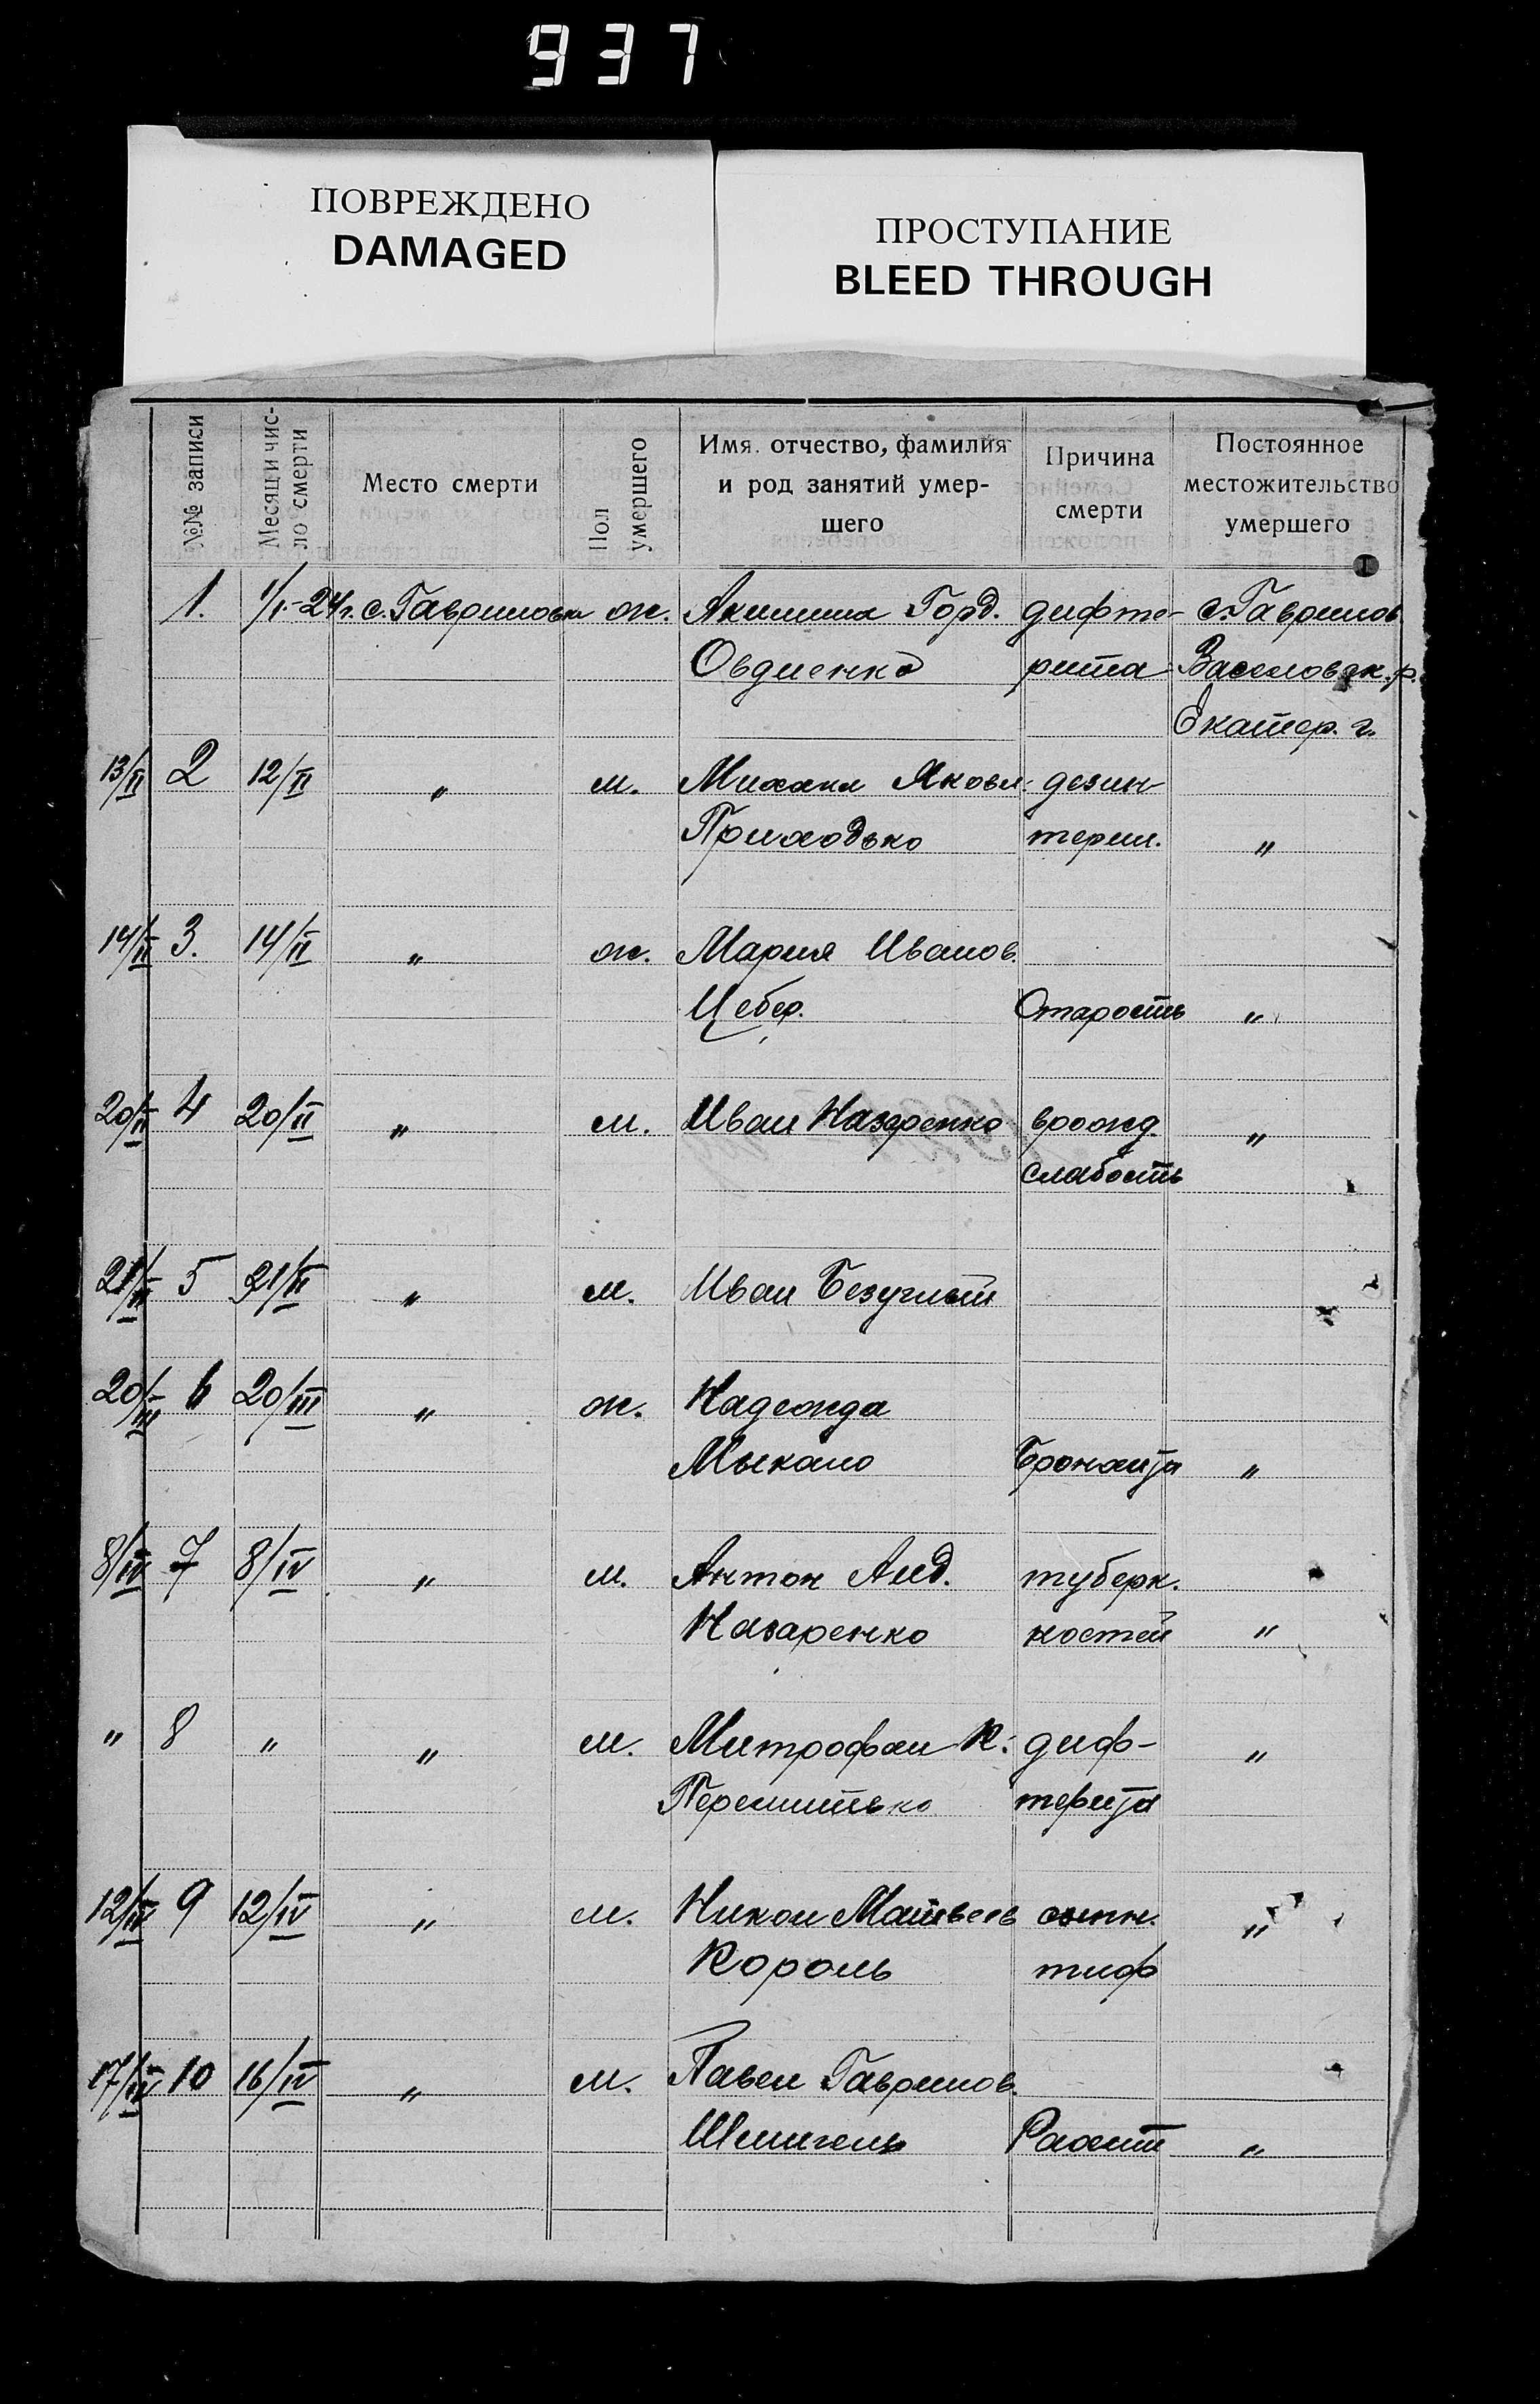 937
ПОВРЕЖДЕНО
DAMAGED
ПРОСТУПАНИЕ
BLEED THROUGH
№№ записи
Месяц и чис-
ло смерти
Место смерти
Пол
умершего
Имя, отчество, фамилия
и род занятий умер-
шего
Причина
смерти
Постоянное
местожительство
умершего
1. 1/I-24г. с. Гавриловка ж. Акилина Горд. дифте- с. Гаврилов
Овдиенко рита Васильевск. р.
Екатер. г.
13/II 2 12/II " м. Михаил Яковл. дезин-
Приходько терии. "
14/II 3. 14/II " ж. Мария Иванов.
Цебер. Старость "
20/II 4 20/II " м. Иван Назаренко врожд. "
слабость
21/II 5 21/II " м. Иван Безуглый
20/III 6 20/III " ж. Надежда
Мыкало Бронхита "
8/IV 7 8/IV " м. Антон Анд. туберк.
Назаренко костей "
" 8 " " м. Митрофан К. диф- "
терита
12/IV 9 12/IV " м. Никон Матвеев сыпн. "
Король тиф
17/IV 10 16/IV " м. Павел Гаврилов.
Шмигель Рахит "